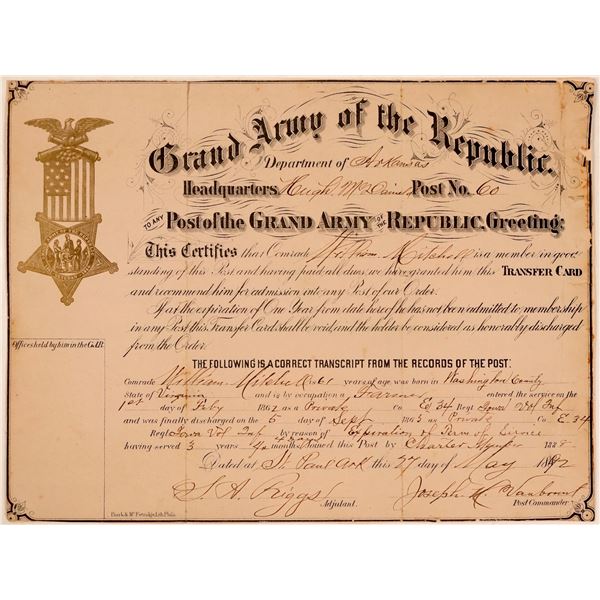 Grand Army of the Republic.
Department of Arkansas
Headquarters Hugh McGuire Post No. 60
TO ANY Post of the GRAND ARMY OF THE REPUBLIC, Greeting:
This Certifies that Comrade William Mitchell is a member in good
standing of this Post and having paid all dues, we have granted him this TRANSFER CARD
and recommend him for admission into any Post of our Order.
If at the expiration of One Year from date hereof he has not been admitted to membership
in any Post this Transfer Card shall be void, and the holder be considered as honorably discharged
from the Order.
Offices held by him in the G.A.R.
THE FOLLOWING IS A CORRECT TRANSCRIPT FROM THE RECORDS OF THE POST:
Comrade William Mitchell is 61 years of age was born in Washington County
State of Virginia and is by occupation a Farmer entered the service on the
1st day of Feby 1862 as a Private Co E 34 Regt Iowa Vol Inf
and was finally discharged on the 5 day of Sept 1865 as a Private Co. E 34
Regt Iowa Vol Inf by reason of Expiration of Term of Service
having served 3 years Joined this Post by Charter 188
Dated at St Paul Ark this 27 day of May 1892
S. A. Riggs Joseph
Adjutant. Post Commander